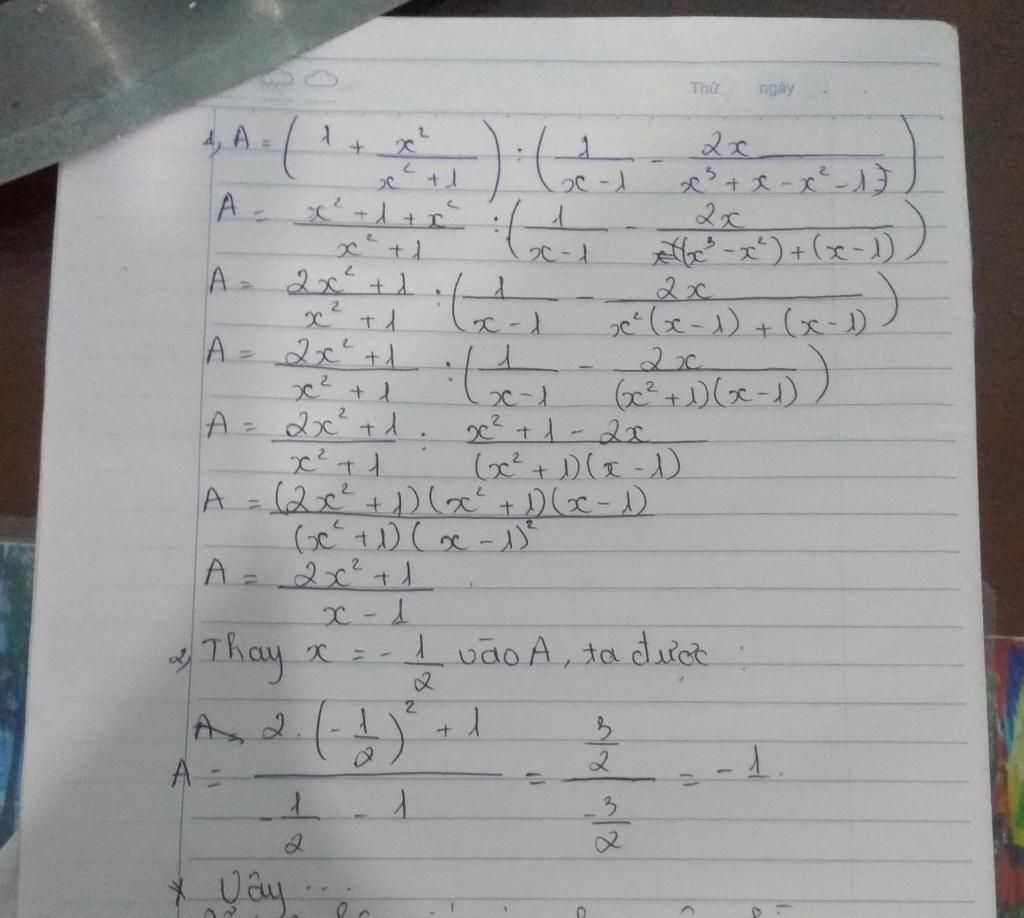 Thứ ngày
1, A = ( 1 + x²/(x² + 1) ) : ( 1/(x - 1) - 2x/(x³ + x - x² - 1) )
A = (x² + 1 + x²)/(x² + 1) : ( 1/(x - 1) - 2x/((x³ - x²) + (x - 1)) )
A = (2x² + 1)/(x² + 1) : ( 1/(x - 1) - 2x/(x²(x - 1) + (x - 1)) )
A = (2x² + 1)/(x² + 1) : ( 1/(x - 1) - 2x/((x² + 1)(x - 1)) )
A = (2x² + 1)/(x² + 1) : (x² + 1 - 2x)/((x² + 1)(x - 1))
A = (2x² + 1)(x² + 1)(x - 1)/((x² + 1)(x - 1)²)
A = (2x² + 1)/(x - 1)
2, Thay x = -1/2 vào A, ta được :
A = (2.(-1/2)² + 1)/(-1/2 - 1) = (3/2)/(-3/2) = -1.
* Vậy ...